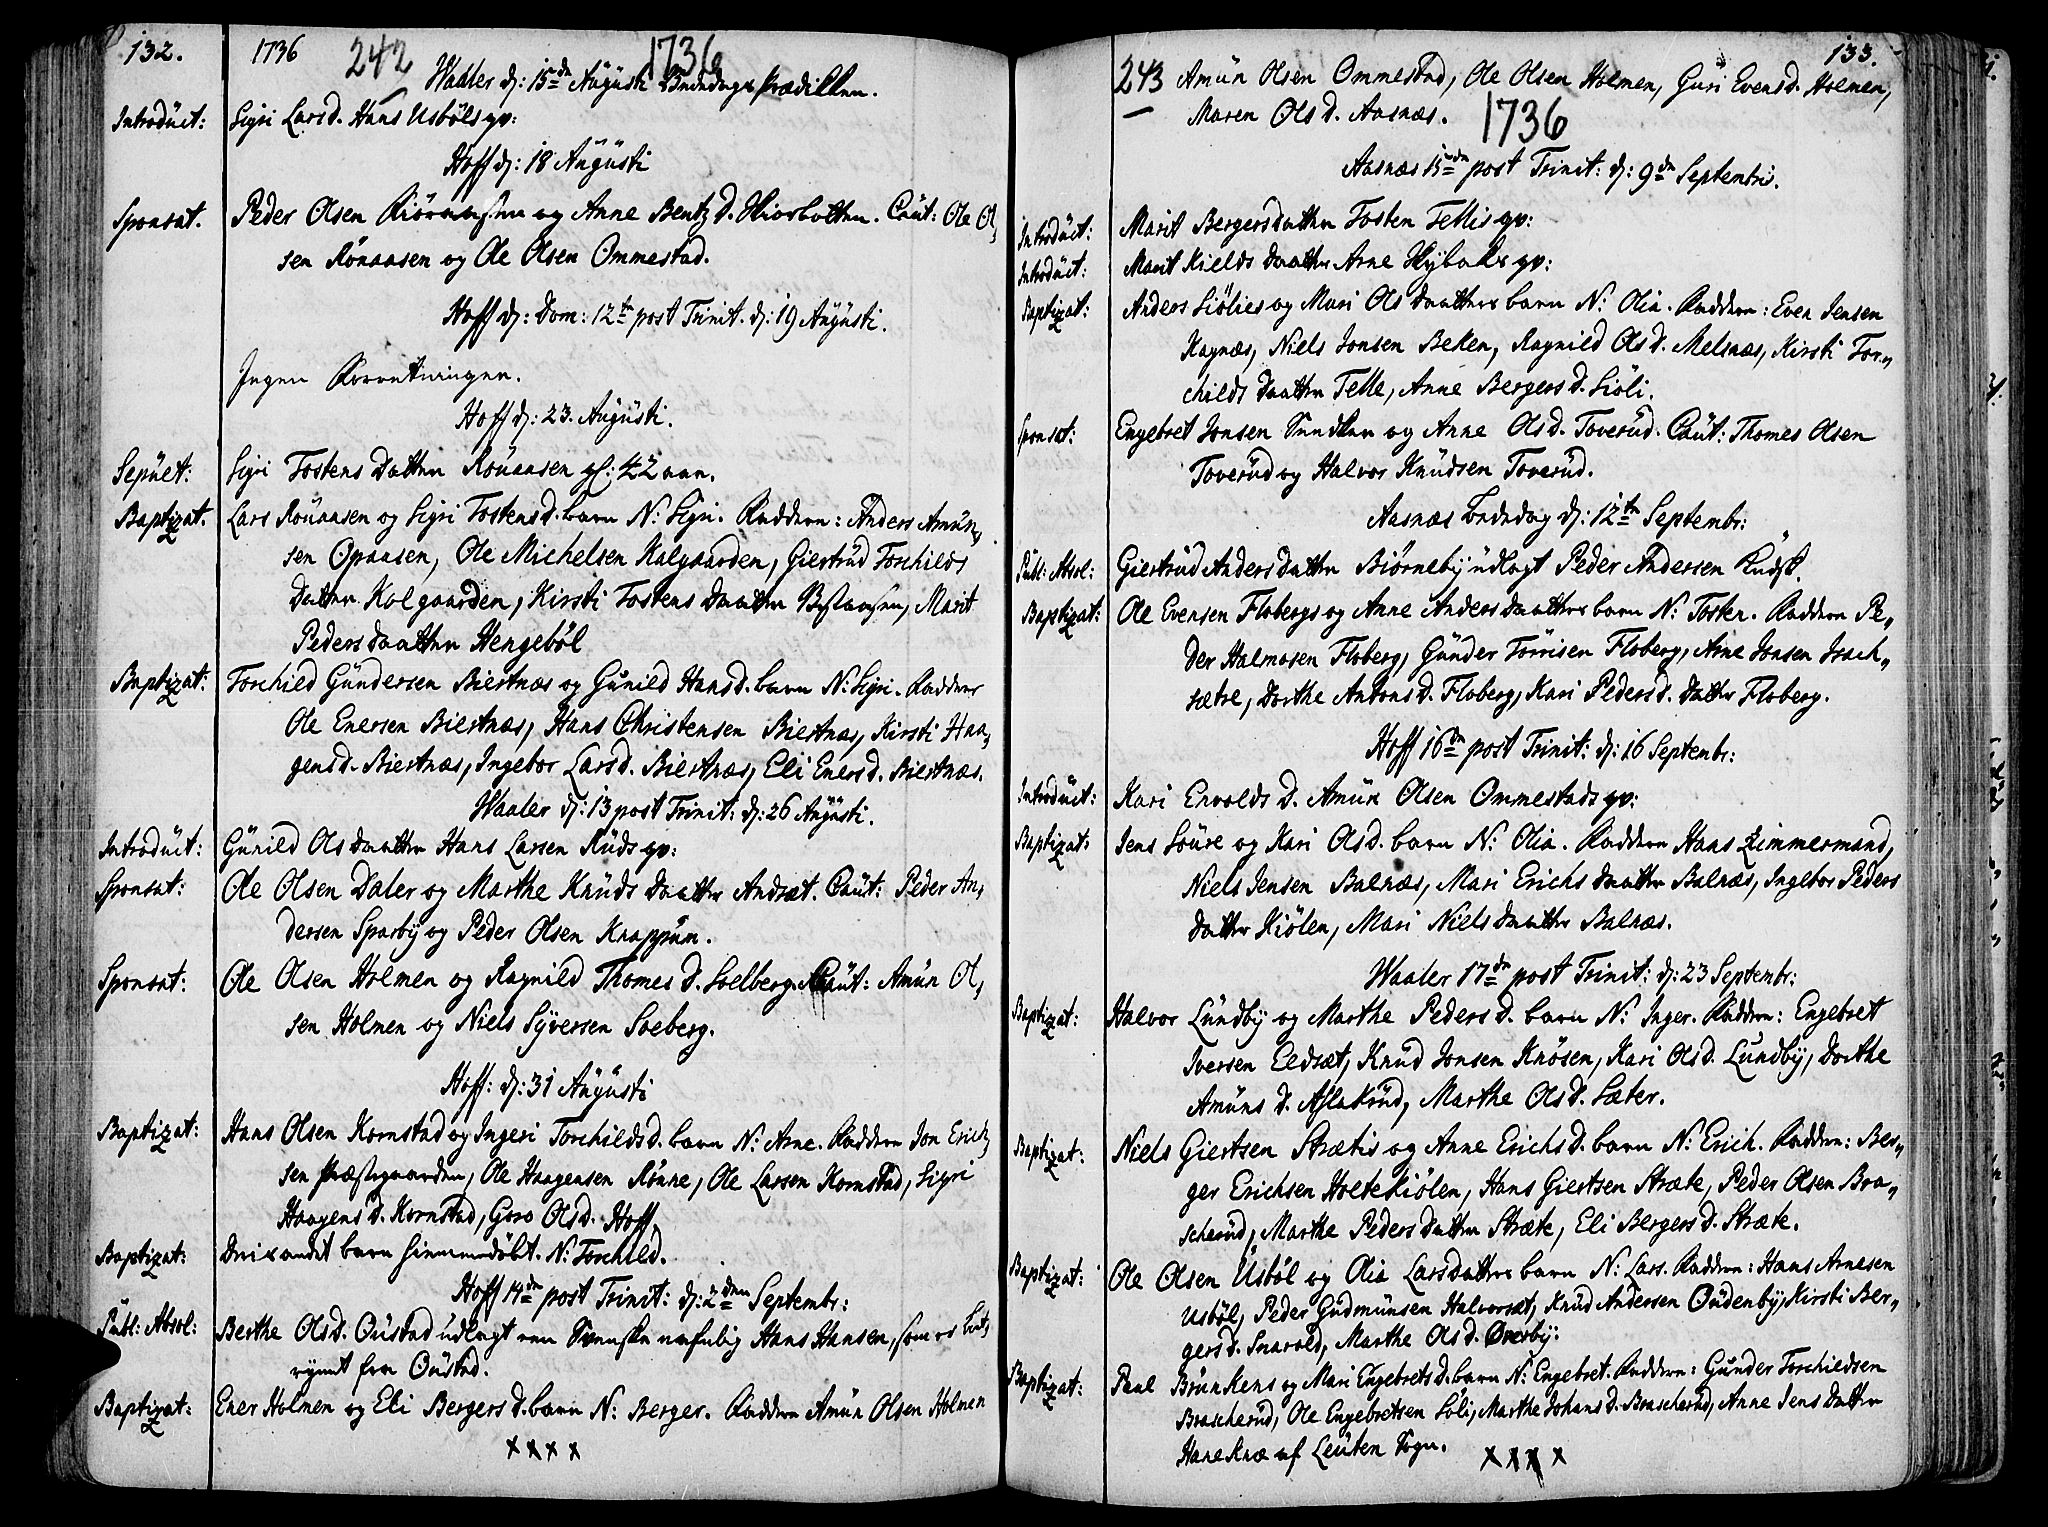 132. 1736 242 1736
Waaler d: 15de Augusti Bededags Prædiken.
Introduct: Sigri Larsd. Hans Usböls qv:
Hoff d: 18 Augusti
Sponsat. Peder Olsen og Anne Bentzd. Caut: Ole Ol„
sen Rönaasen og Ole Olsen Ommestad.
Hoff d: Dom: 12te post Trinit. d: 19 Augusti.
Ingen Forretninger.
Hoff d: 23. Augusti.
Sepult: Sigri Tostens Datter Rönaasen gl: 42 aar.
Baptizat. Lars Rönaasen og Sigri Tostensd. barn N: Sigri. Faddere: Anders Amün„
sen Opaasen, Ole Michelsen Kalgaarden, Giertrüd Torchilds
Datter Kolgaarden, Kirsti Tostens Daatter Marit
Peders daatter Hengeböl
Baptizat: Torchild Gündersen Biertnæs og Günild Hansd. barn N: Sigri. Faddere
Ole Enersen Biertnæs, Hans Christensen Biertnæs, Kirsti Haa„
gensd. Biertnæs, Ingebor Larsd. Biertnæs, Eli Enersd. Biertnæs.
Waaler d: 13 post Trinit: d: 26 Augusti.
Introduct: Günild Olsdaatter Hans Larsen Rüds qv:
Sponsat: Ole Olsen Daler og Marthe Knüds daatter Andræt. Caut: Peder An„
dersen Sparby og Peder Olsen Knappüm.
Sponsat: Ole Olsen Holmen og Ragnild Thomesd. Soelberg. Caut: Amün Ol„
sen Holmen og Niels Syversen Soeberg.
Hoff: d: 31 Augusti
Baptizat: Hans Olsen Kornstad og Ingeri Torchildsd. barn N: Arne. Faddere Jon Erick„
sen Præstegaarden, Ole Haagensen Rönne, Ole Larsen Kornstad, Sigri
Haagensd. Kornstad, Goro Olsd. Hoff.
Baptizat: andet barn hiemmedöbt. N: Torchild.
Hoff 14de post Trinit: d: 2den Septembr:
Publ: Absol: Berthe Olsd. Oüstad udlagt een Svenske nafnlig Hans Hansen, som er bort„
rymt fra Oüstad.
Baptizat: Ener Holmen og Eli Bergersd. barn N: Berger. Faddere Amün Olsen Holmen
x x x x
133.
243 Amün Olsen Ommestad, Ole Olsen Holmen, Guri Evensd. Holmen,
Maren Olsd. Aasnæs. 1736
Aasnæs 15de post Trinit: d: 9de Septembris.
Introduct: Marit Bergersdaatter Tosten Tellis qv:
Introduct: Marit Kields daatter Arne qv:
Baptizat: Anders Siölies og Mari Ols daatters barn N: Olia. Faddere: Even Jensen
Kagnæs, Niels Jonsen Beken, Ragnild Olsd. Melsnæs, Kirsti Tor„
childs daatter Telle, Anne Bergersd. Siöli.
Sponsat: Engebret Jonsen og Anne Olsd. Toverüd. Caut: Thomes Olsen
Toverüd og Halvor Knüdsen Toverüd.
Aasnæs d: 12te Septembr:
Publ: Absol: Giertrüd Anders daatter Biörneby udlagt Peder Andersen
Baptizat: Ole Evensen Flobergs og Anne Anders daatters barn N: Tosten. Faddere Pe„
der Halmosen Floberg, Günder Törrisen Floberg, Arne Jonsen Isach„
sætre, Dorthe Antonsd. Floberg, Kari Pedersd. Datter Floberg.
Hoff 16de post Trinit: d: 16 Septembr:
Introduct: Kari Envolds d. Amün Olsen Ommestads qv:
Baptizat: Jens Soure og Kari Olsd. barn N: Olia. Faddere Hans Zimmermand,
Niels Jensen Balnæs, Mari Erichs daatter Balnæs, Ingebor Peders
datter Kiölen, Mari Niels daatter Balnæs.
Waaler 17de post Trinit: d: 23 Septembr:
Baptizat: Halvor Lündby og Marthe Peders d. barn N: Inger. Faddere: Engebret
Iversen Eedsæt, Knüd Jonsen Knösen, Kari Olsd. Lündby, Dorthe
Amüns d. Aslakrüd, Marthe Olsd. Sæter.
Baptizat: Niels Giertsen Strætis og Anne Erichsd. barn N: Erich. Faddere: Ber„
ger Erichsen Holtekiölen, Hans Giertsen Stræte, Peder Olsen Bra„
scherüd, Marthe Peders datter Stræte, Eli Bergersd. Stræte.
Baptizat: Ole Olsen Usböl og Olia Larsdatters barn N: Lars. Faddere: Hans Arnesen
Usböl, Peder Güdmünsen Halvorsæt, Knüd Andersen Oüdenby, Kirsti Ber„
gersd. Snarold, Marthe Olsd. Överby.
Baptizat: Paul Brünkens og Mari Engebretsd. barn N: Engebret. Faddere: Günder Torchildsen
Brascherüd, Ole Engebretsen Söli, Marthe Johansd. Brascherüd, Anne Jens datter
Haneknæ af Leüten Sogn. x x x x